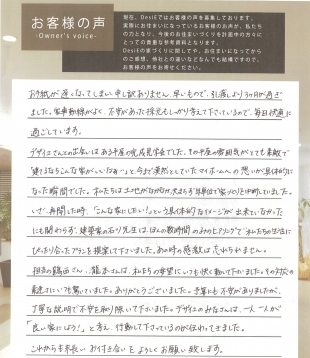 お客様の声
-Owner's voice-
現在、DesiEではお客様の声を募集しております。
実際にお住まいになっているお客様のお声が、私たち
の力となり、今後のお住まいづくりを計画中の方々に
とっての貴重な参考資料となります。
DesiEの家づくりに関してや、お住まいになってから
のご感想、他社との違いなどなんでも結構ですので、
お客様の声をお寄せください。
お手紙が遅くなってしまい申し訳ありません。早いもので、引渡しより3ヶ月が過ぎ
ました。家事動線がよく、不安があった採光もしっかり考えて下さっているので、毎日快適に
過ごしています。
デザイエさんとの出会いはある平屋の完成見学会でした。その平屋の雰囲気がとても素敵で
「建てるならこんな家がいいなぁ」と今まで漠然としていたマイホームへの思いが具体的に
なった瞬間でした。私たちは土地がなかなか決まらず
いざ、再開した時、「こんな家にしたい！」という具体的なイメージが出来ていなかった
にも関わらず、建築家の石川先生はほんの数時間のみのヒアリングで、私たちの生活に
ぴったり合ったプランを提案して下さいました。あの時の感激は忘れられません。
担当の
丁寧な説明で不安を取り除いて下さいました。デザイエのみなさんは、一人一人が
「良い家にしよう！」と考え、行動して下さっているのが伝わってきました。
これからも末長いお付き合いをよろしくお願い致します。